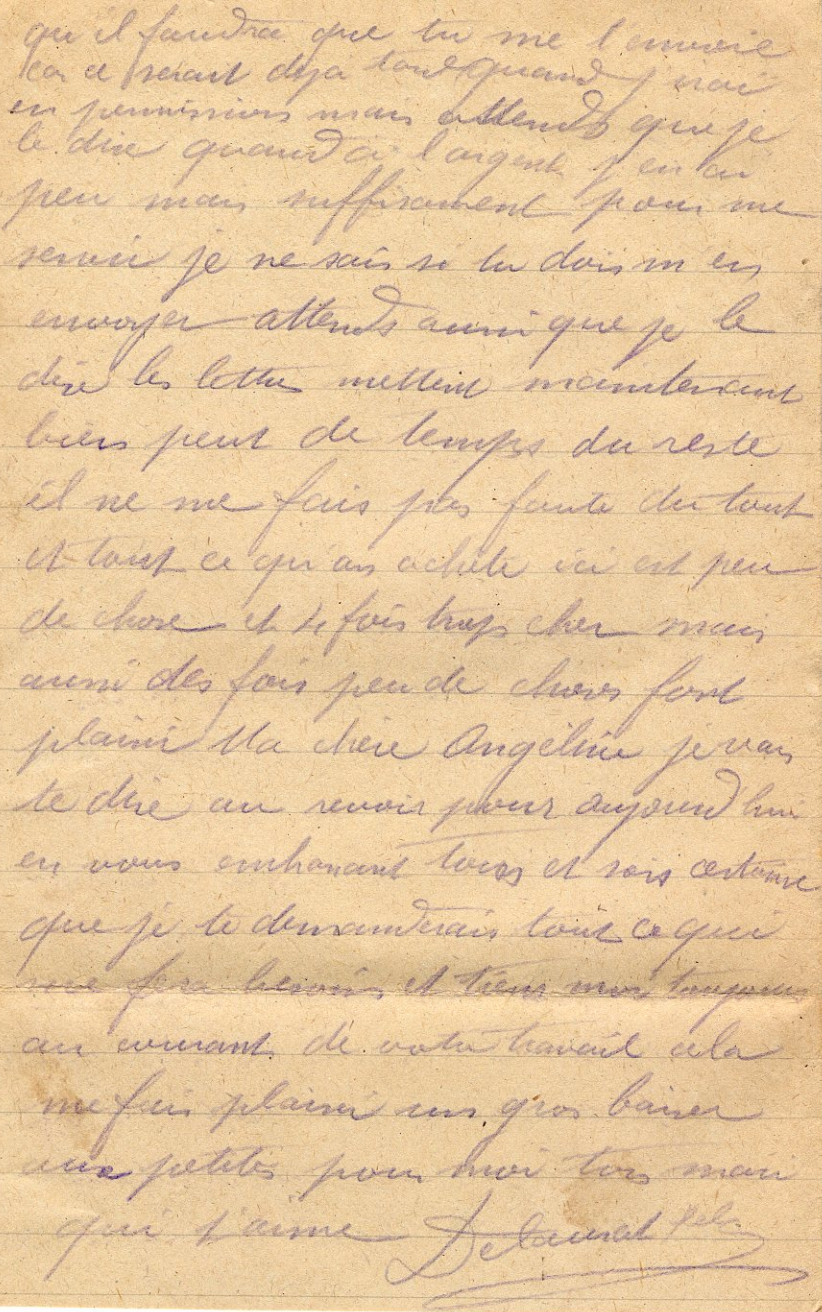 qu il faudra que tu me l envoie
car ce serait deja tard quand j irai
en permission mais attends que je
le dise quand a l argent j en ai
peu mais suffisament pour me
servir je ne sais si tu dois m en
envoyer attends aussi que je le
dise les lettres mettent maintenant
bien peut de temps du reste
il ne me fais pas faute du tout
et tout ce qu on achète ici est peu
de chose et 4 fois trop cher mais
aussi des fois peu de choses font
plaisir Ma chère Angéline je vais
te dire au revoir pour aujourd'hui
en vous embrassant tous et sois certaine
que je te demanderais tout ce qui
me fera besoin et tiens moi toujours
au courant de votre travail cela
me fais plaisir un gros baiser
aux petites pour moi ton mari
qui t'aime